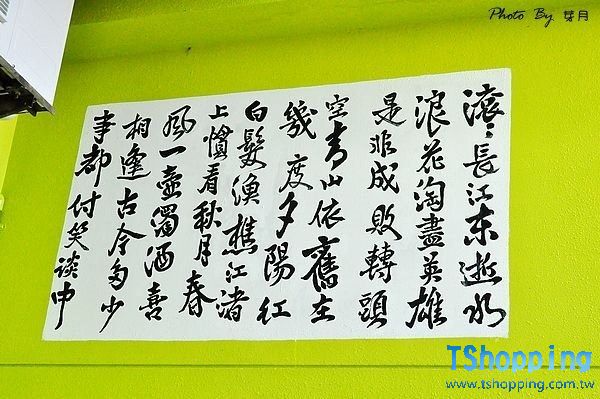 Photo By 葉月
滾〻長江東逝水
浪花淘盡英雄
是非成敗轉頭
空青山依舊在
幾度夕陽紅
白髮漁樵江渚
上慣看秋月春
風一壺濁酒喜
相逢古今多少
事都付笑談中
TShopping
www.tshopping.com.tw